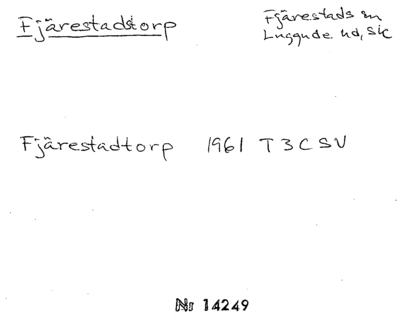 Fjärestadstorp
Fjärestads sn
Luggude hd, Sk
Fjärestadtorp 1961 T3CSV
Nr 14249